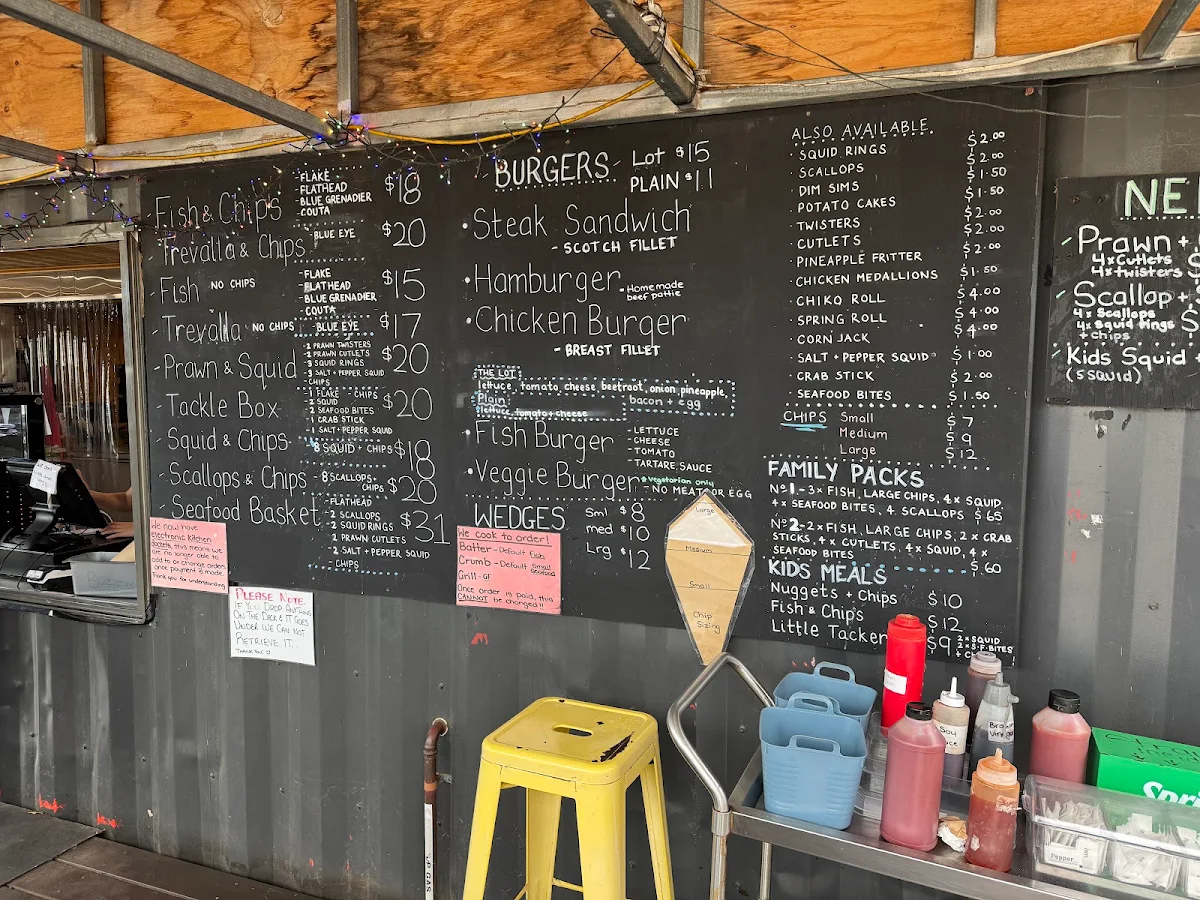 Fish & Chips
- FLAKE
- FLATHEAD
- BLUE GRENADIER
COUTA
$18
Trevalla & Chips
- BLUE EYE
$20
Fish NO CHIPS
- FLAKE
- FLATHEAD
- BLUE GRENADIER
COUTA
$15
Trevalla NO CHIPS
- BLUE EYE
$17
Prawn & Squid
- 2 PRAWN TWISTERS
- 2 PRAWN CUTLETS
- 3 SQUID RINGS
- 3 SALT + PEPPER SQUID
CHIPS
$20
Tackle Box
- 1 FLAKE - CHIPS
- 2 SQUID
- 2 SEAFOOD BITES
- 1 CRAB STICK
- 1 SALT + PEPPER SQUID
$20
Squid & Chips
- 8 SQUID + CHIPS
$18
Scallops & Chips
- 8 SCALLOPS +
CHIPS
$20
Seafood Basket
- FLATHEAD
- 2 SCALLOPS
- 2 SQUID RINGS
2 PRAWN CUTLETS
- 2 SALT + PEPPER SQUID
- CHIPS
$31
We now have
electronic kitchen
dockets, this means we
are no longer able to
add to or change orders
once payment is made.
Thank you for understanding
PLEASE NOTE.
IF YOU DROP ANYTHING
ON THE DECK & IT GOES
UNDER WE CAN NOT
RETRIEVE IT.
THANK YOU
BURGERS
Lot $15
PLAIN $11
• Steak Sandwich
- SCOTCH FILLET
• Hamburger
• Homemade
beef pattie
• Chicken Burger
- BREAST FILLET
THE LOT:
lettuce, tomato, cheese, beetroot, onion, pineapple,
bacon + egg
Plain:
lettuce, tomato + cheese
• Fish Burger
- LETTUCE
- CHEESE
- TOMATO
TARTARE SAUCE
• Veggie Burger
* Vegetarian only
- NO MEAT OR EGG
WEDGES
Sml $8
med $10
Lrg $12
We cook to order!
Batter - Default fish
Crumb - Default small seafood
Grill - GF
Once order is paid, this
CANNOT be changed!!
Large
Medium
Small
Chip
Sizing
ALSO AVAILABLE.
• SQUID RINGS $2.00
• SCALLOPS $2.00
• DIM SIMS $1.50
• POTATO CAKES $1.50
TWISTERS $2.00
CUTLETS $2.00
PINEAPPLE FRITTER $2.00
CHICKEN MEDALLIONS $1.50
CHIKO ROLL $4.00
SPRING ROLL $4.00
CORN JACK $4.00
SALT + PEPPER SQUID $1.00
CRAB STICK $2.00
SEAFOOD BITES $1.50
CHIPS
Small $7
Medium $9
Large $12
FAMILY PACKS
No 1 - 3 x FISH, LARGE CHIPS, 4 x SQUID,
4 x SEAFOOD BITES, 4 SCALLOPS $65
No 2 - 2 x FISH, LARGE CHIPS, 2 x CRAB
STICKS, 4 x CUTLETS, 4 x SQUID, 4 x
SEAFOOD BITES $60
KIDS MEALS
Nuggets + Chips $10
Fish & Chips $12
Little Tacker $9
2 x SQUID
2 x S.F. BITES
NE
Prawn +
4 x Cutlets
4 x twisters $
Scallop +
4 x Scallops
4 x squid rings
+ chips
$
Kids Squid
(5 SQUID)
Soy
Sauce
Pepper
LP GAS